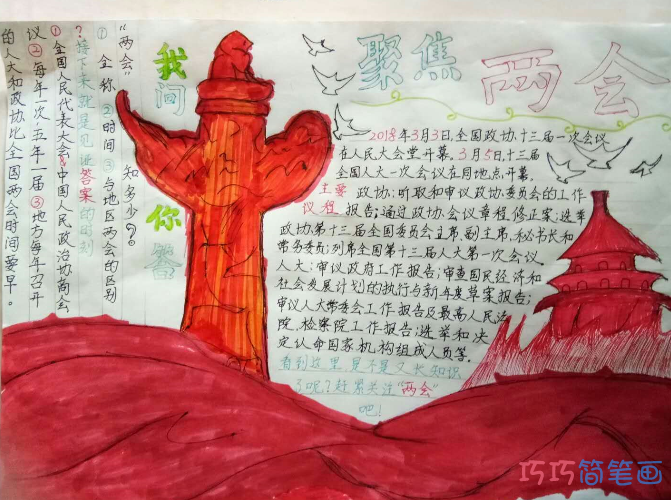 聚焦两会
2018年3月3日,全国政协十三届一次会议
在人民大会堂开幕。3月5日,十三届
全国人大一次会议在同地点开幕。
主要 政协:听取和审议政协委员会的工作
议程 报告;通过政协会议章程修正案;选举
政协第十三届全国委员会主席、副主席,秘书长和
常务委员;列席全国第十三届人大第一次会议。
人大:审议政府工作报告;审查国民经济和
社会发展计划的执行与新年度草案报告;
审议人大常委会工作报告及最高人民法
院、检察院工作报告;选举和决
定认命国家机构组成人员等。
看到这里,是不是又长知识
了呢?赶紧关注“两会”
吧!
我问
你答
“两会” 知多少?
①全称 ②时间 ③与地区两会的区别
?接下来就是见证答案的时刻
①全国人民代表大会 中国人民政治协商会
议②每年一次,五年一届③地方每年召开
的人大和政协比全国两会时间要早。
巧巧简笔画